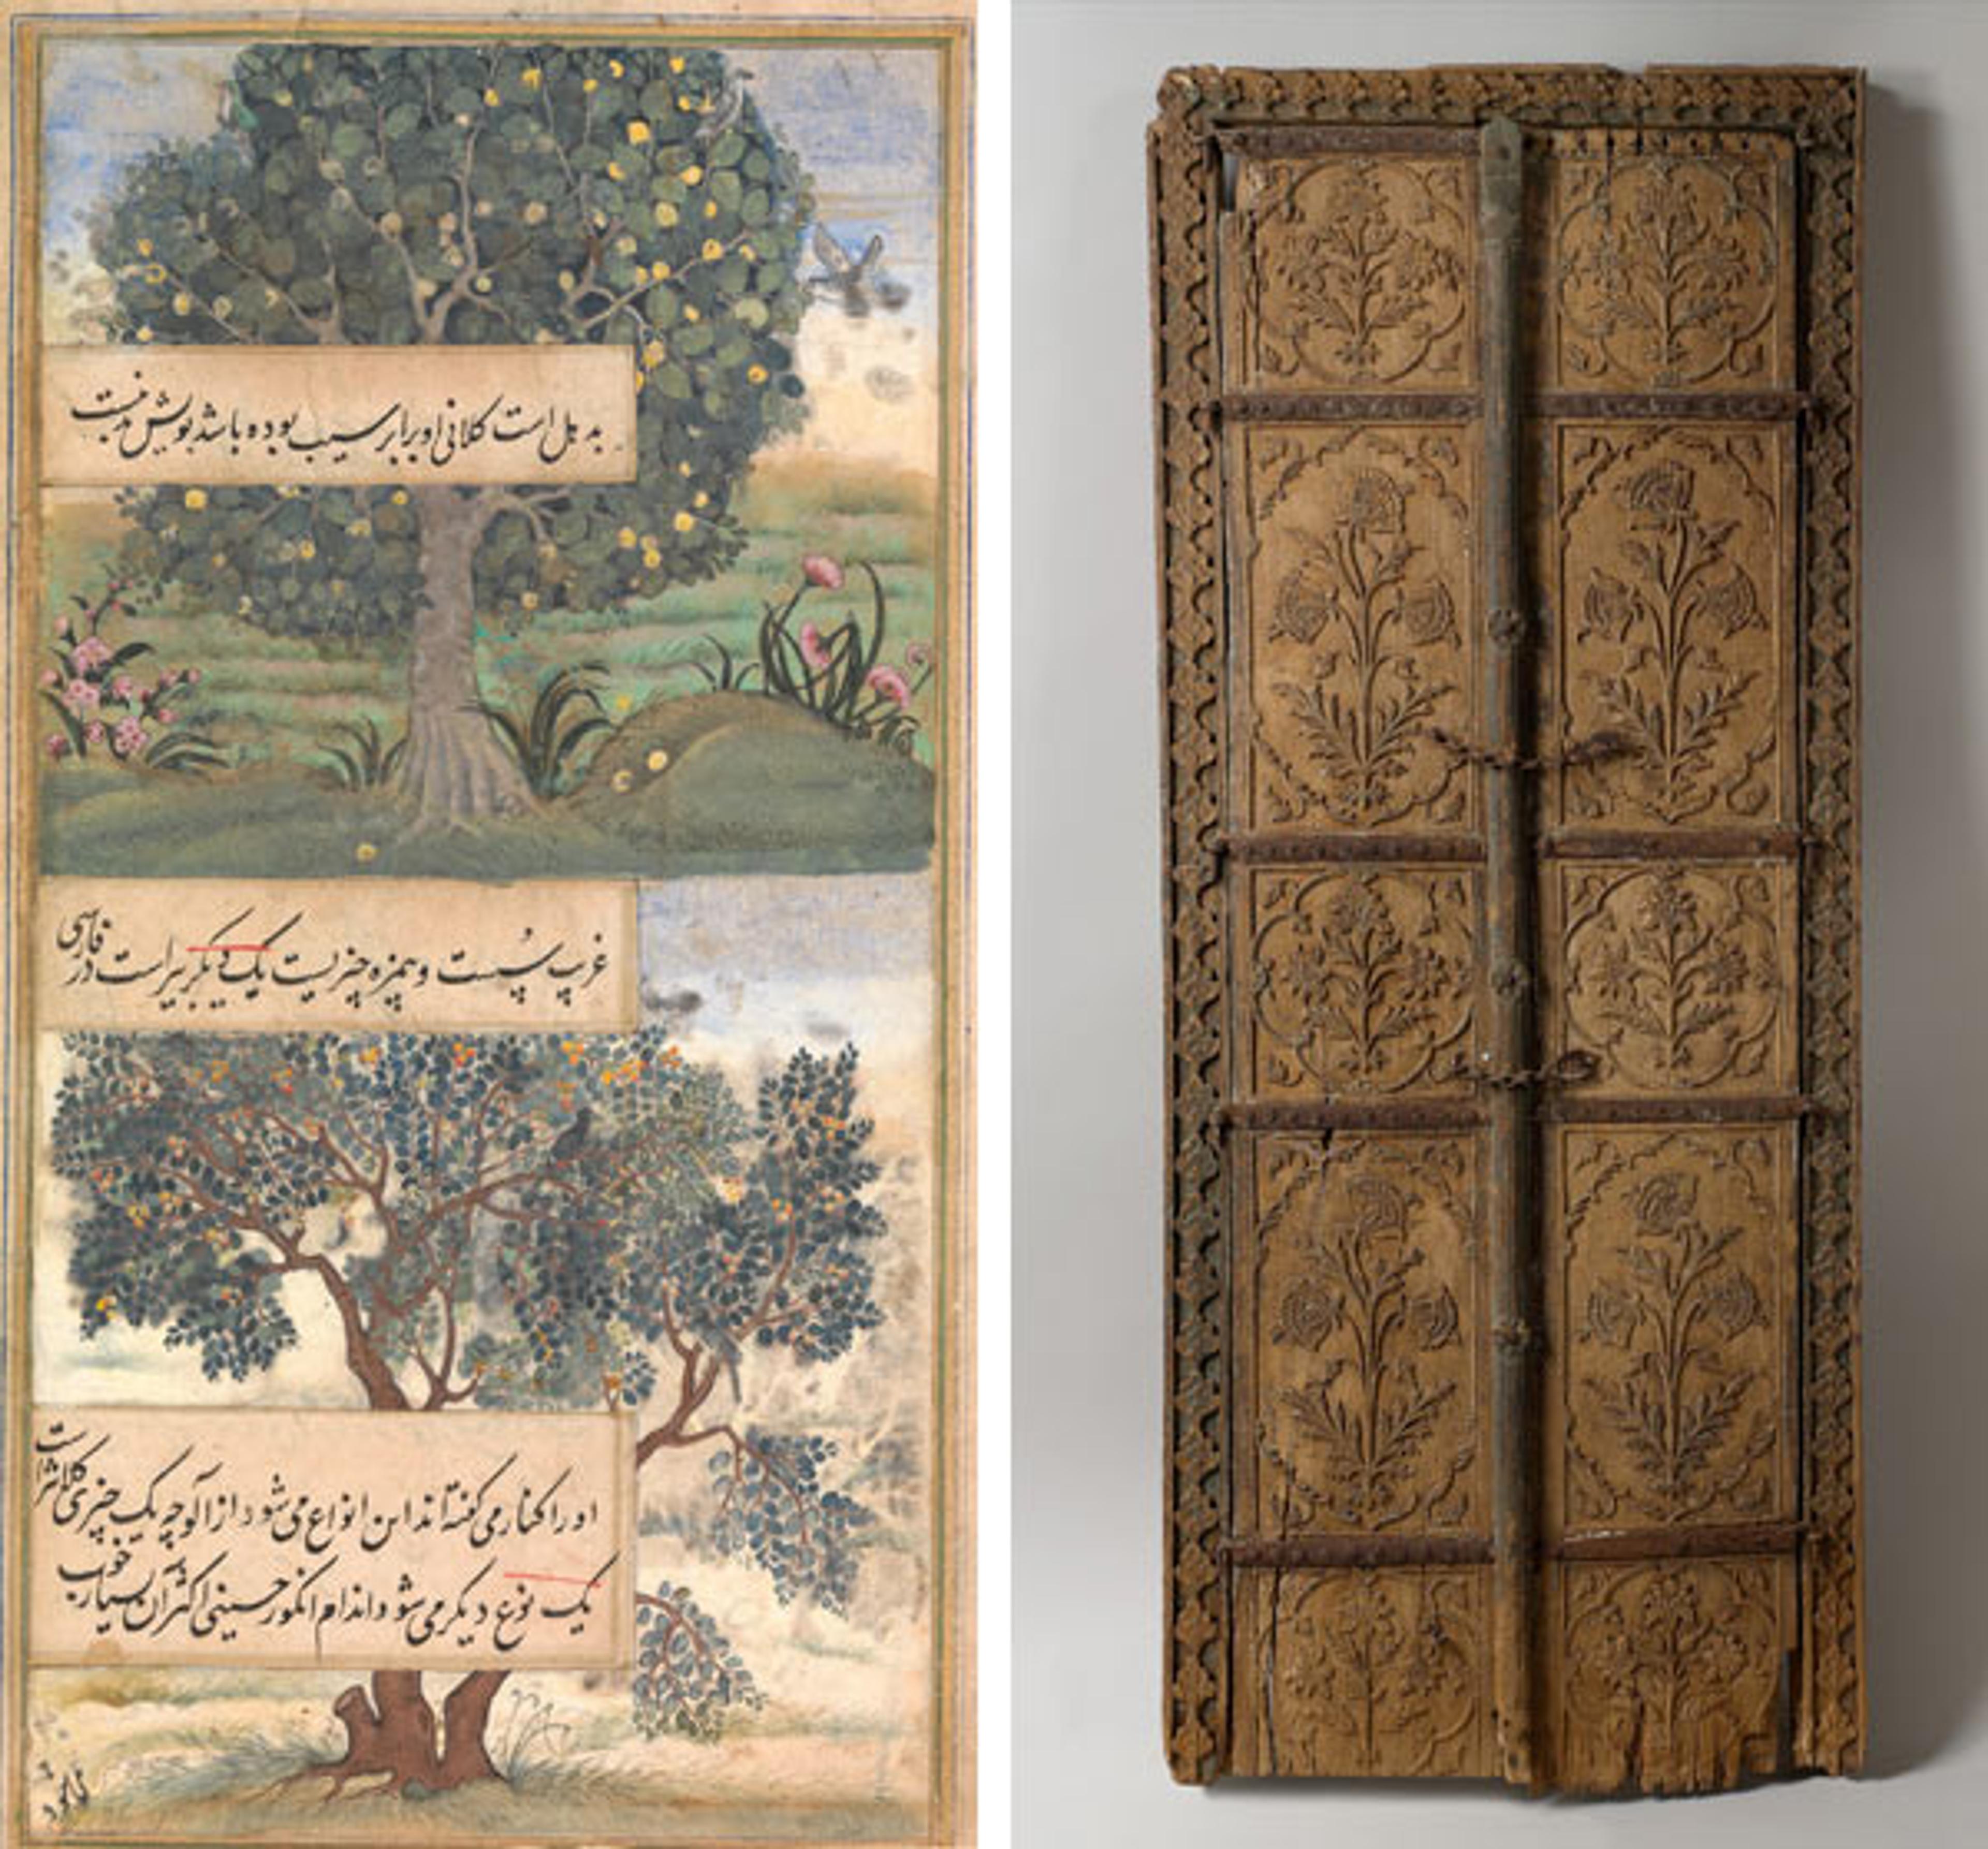 بدهل است کلانی او برابر سیب بوده باشد بویش بد نیست
غریب پُست و بیمزه چیزیست یک دیگر بیراست در فارسی
او را کنار می‌گفته‌اند این انواع می‌شود از آلوچه یک چیزی کلان‌تر است
یک نوع دیگر می‌شود اندام انگور حسینی اکثر آن بسیار خوب